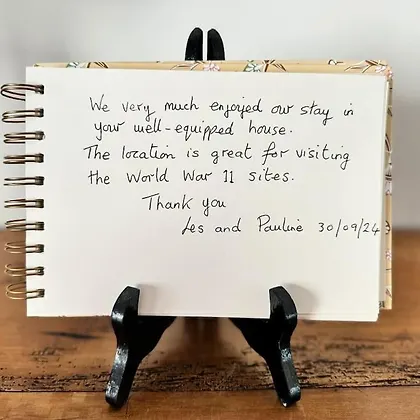 We very much enjoyed our stay in
your well-equipped house.
The location is great for visiting
the World War 11 sites.
Thank you
Les and Pauline 30/09/24